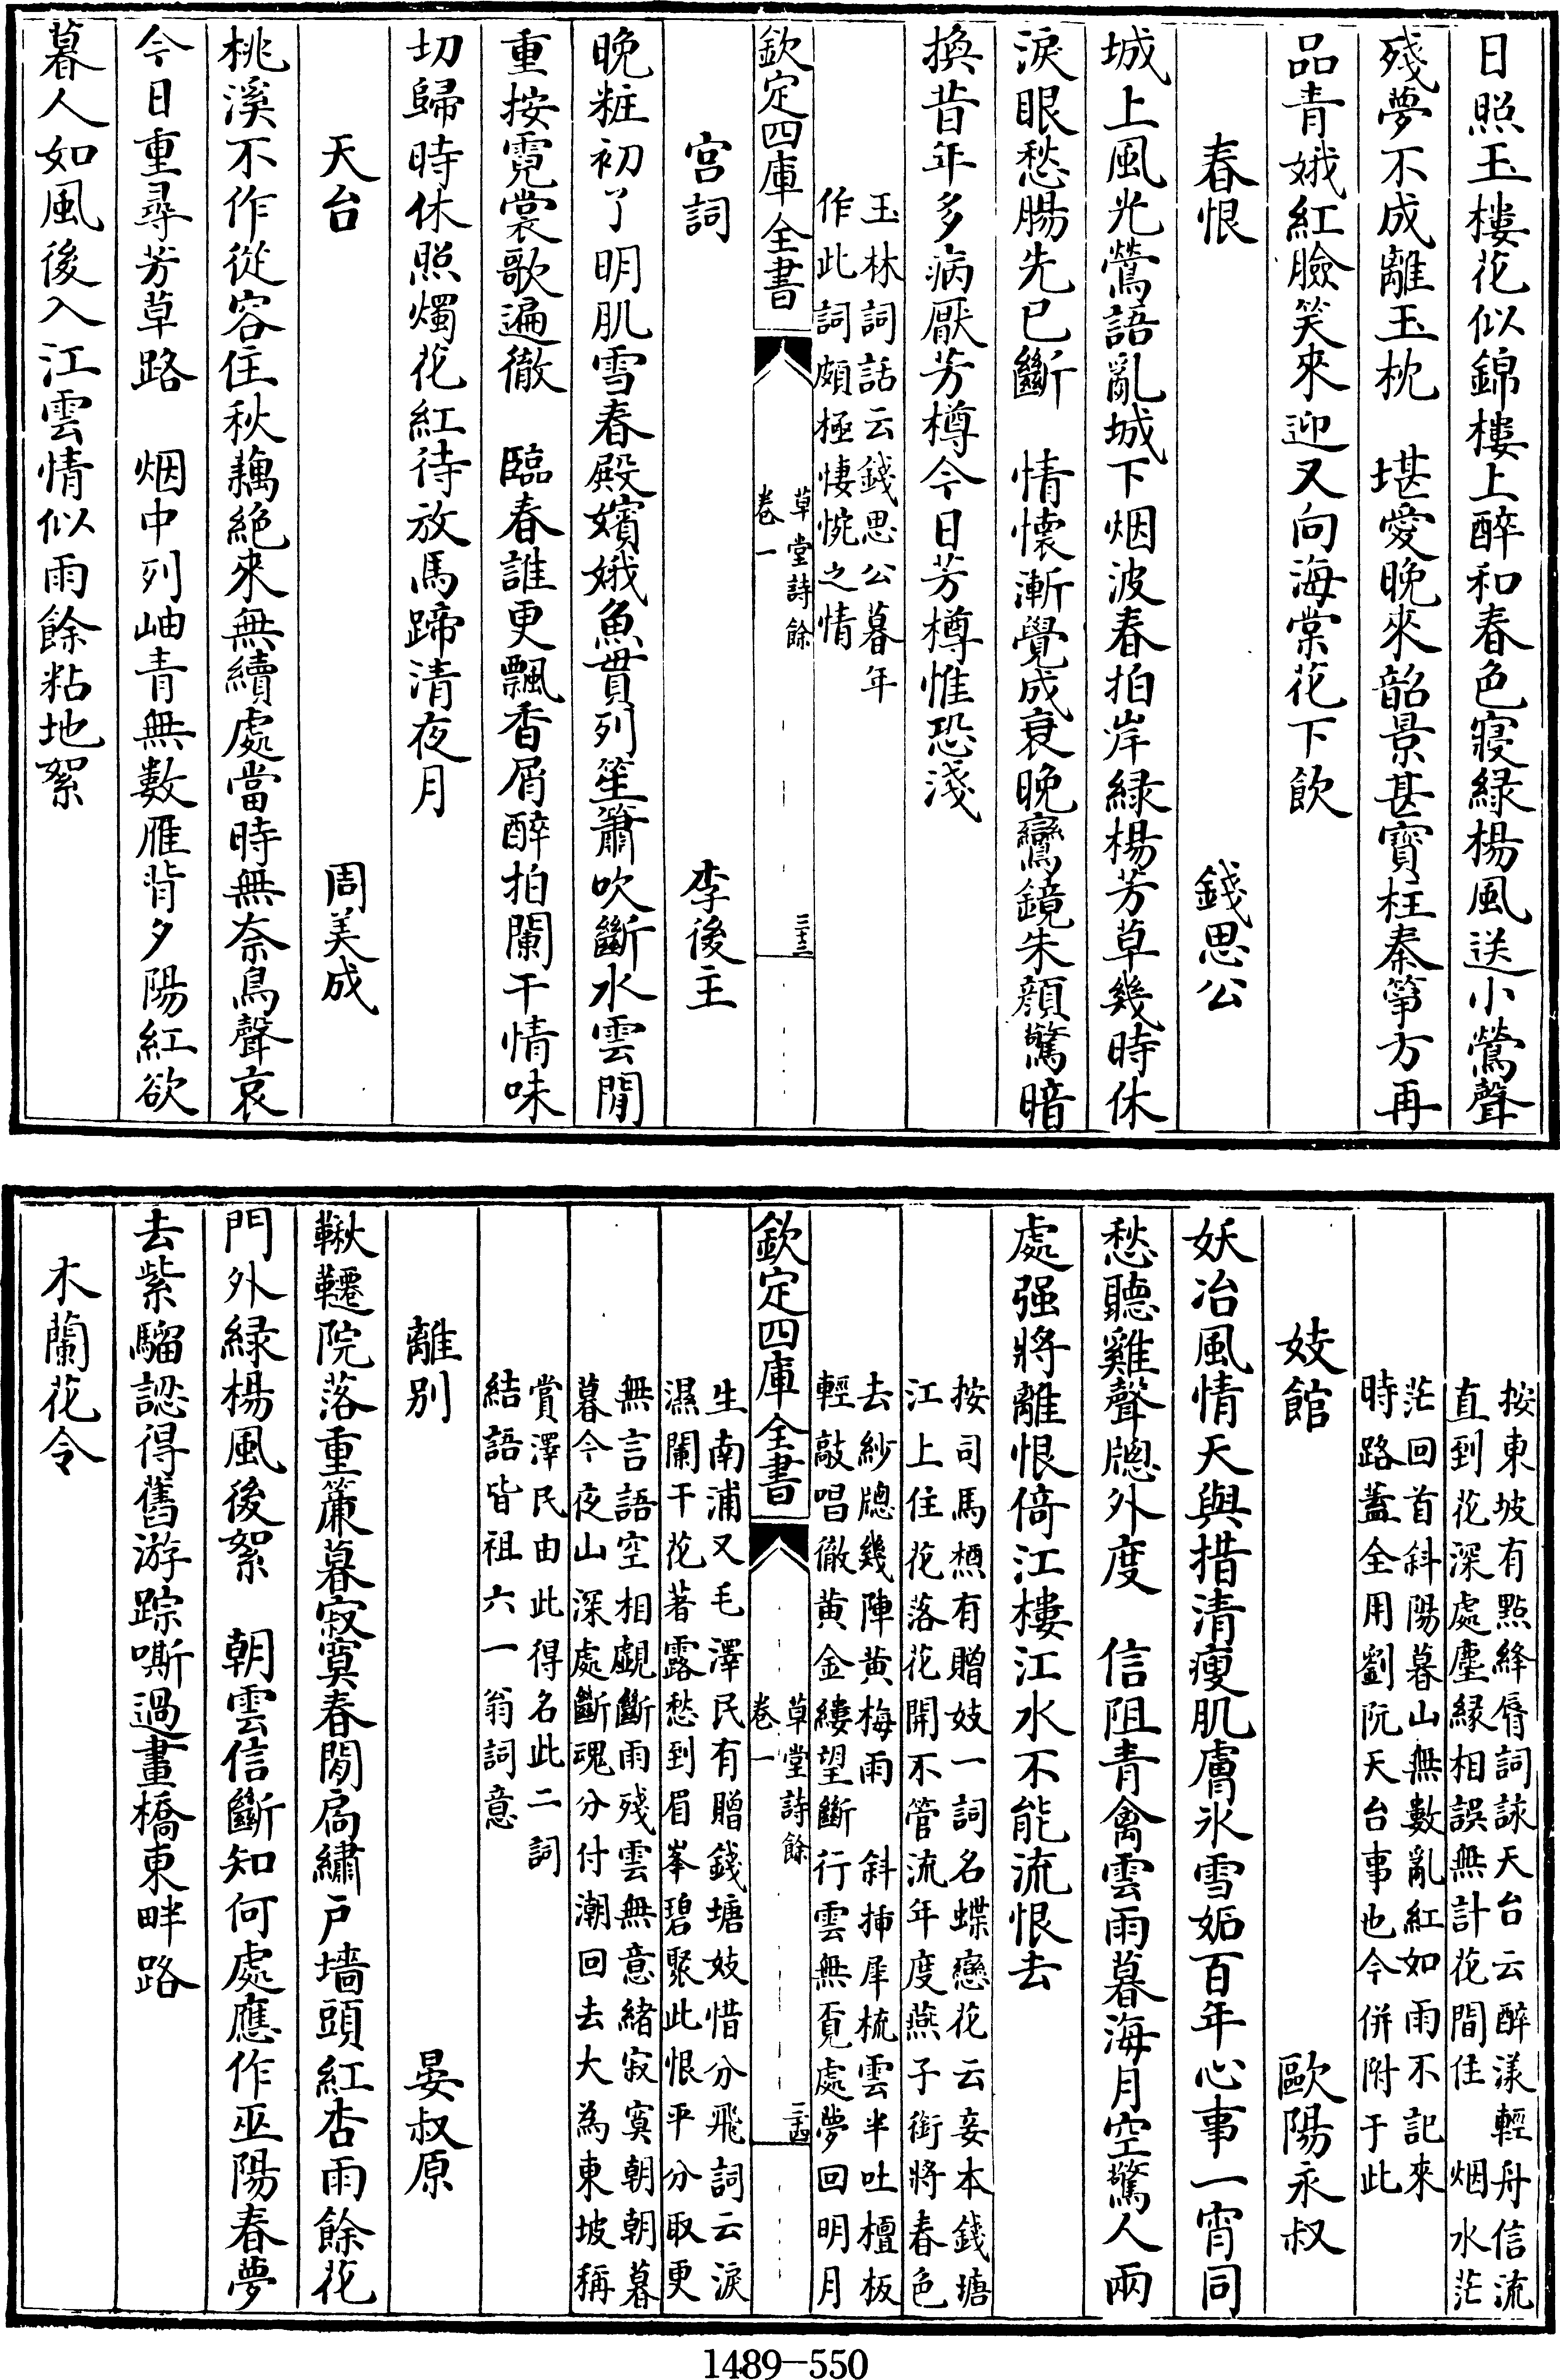 日照玉樓花似錦樓上醉和春色寢緑楊風送小鶯聲
殘夢不成離玉枕　堪愛晚來韶景甚寳柱秦筝方再
品青娥紅臉笑來迎又向海棠花下飲
春恨　錢思公
城上風光鶯語亂城下烟波春拍岸緑楊芳草幾時休
淚眼愁腸先已斷　情懷漸覺成衰晚鸞鏡朱顔驚暗
換昔年多病厭芳樽今日芳樽惟恐淺
玉林詞話云錢思公暮年
作此詞頗極悽惋之情
欽定四庫全書　草堂詩餘　卷一　三十三
宫詞　李後主
晚粧初了明肌雪春殿嬪娥魚貫列笙簫吹斷水雲閒
重按霓裳歌遍徹　臨春誰更飄香屑醉拍闌干情味
切歸時休照燭花紅待放馬蹄清夜月
天台　周美成
桃溪不作從容住秋藕絶來無續處當時無奈鳥聲哀
今日重尋芳草路　烟中列岫青無數雁背夕陽紅欲
暮人如風後入江雲情似雨餘粘地絮
按東坡有點絳脣詞詠天台云醉漾輕舟信流
直到花深處塵縁相誤無計花間住　烟水茫
茫回首斜陽暮山無數亂紅如雨不記來
時路蓋全用劉阮天台事也今併附于此
妓館　歐陽永叔
妖冶風情天與措清瘦肌膚氷雪妬百年心事一宵同
愁聽雞聲牕外度　信阻青禽雲雨暮海月空驚人兩
處强將離恨倚江樓江水不能流恨去
按司馬槱有贈妓一詞名蝶戀花云妾本錢塘
江上住花落花開不管流年度燕子銜將春色
去紗牕幾陣黄梅雨　斜揷犀梳雲半吐檀板
輕敲唱徹黄金縷望斷行雲無覓處夢回明月
欽定四庫全書　草堂詩餘　卷一　三十四
生南浦又毛澤民有贈錢塘妓惜分飛詞云淚
濕闌干花著露愁到眉峯碧聚此恨平分取更
無言語空相覷斷雨殘雲無意緒寂寞朝朝暮
暮今夜山深處斷魂分付潮回去大為東坡稱
賞澤民由此得名此二詞
結語皆祖六一翁詞意
離别　晏叔原
鞦韆院落重簾暮寂寞春閒扃繡戸墻頭紅杏雨餘花
門外緑楊風後絮　朝雲信斷知何處應作巫陽春夢
去紫騮認得舊游踪嘶過畫橋東畔路
木蘭花令
1489–550